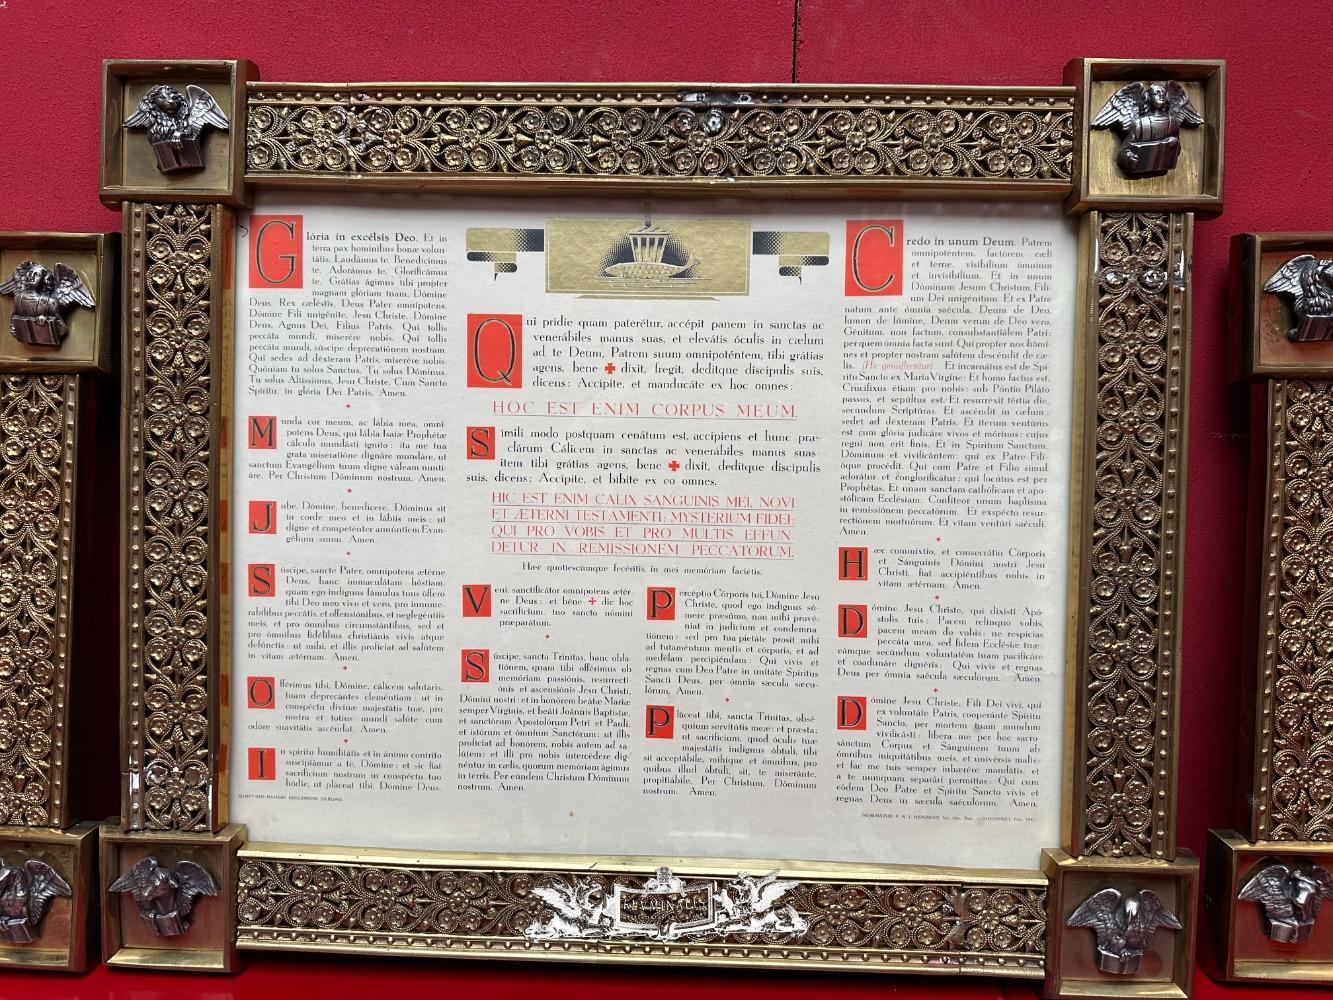 Glória in excélsis Deo. Et in
terra pax homínibus bonæ volun-
tátis. Laudámus te. Benedícimus
te. Adorámus te. Glorificámus
te. Grátias ágimus tibi propter
magnam glóriam tuam. Dómine
Deus, Rex cæléstis, Deus Pater omnípotens.
Dómine Fili unigénite, Jesu Christe. Dómine
Deus, Agnus Dei, Fílius Patris. Qui tollis
peccáta mundi, miserére nobis. Qui tollis
peccáta mundi, súscipe deprecatiónem nostram.
Qui sedes ad déxteram Patris, miserére nobis.
Quóniam tu solus Sanctus. Tu solus Dóminus.
Tu solus Altíssimus, Jesu Christe. Cum Sancto
Spíritu, in glória Dei Patris. Amen.
Munda cor meum, ac lábia mea, omní-
potens Deus, qui lábia Isaíæ Prophétæ
cálculo mundásti igníto: ita me tua
grata miseratióne dignáre mundáre, ut
sanctum Evangélium tuum digne váleam nunti-
áre. Per Christum Dóminum nostrum. Amen.
Jube, Dómine, benedícere. Dóminus sit
in corde meo et in lábiis meis: ut
digne et competénter annúntiem Evan-
gélium suum. Amen.
Súscipe, sancte Pater, omnípotens ætérne
Deus, hanc immaculátam hóstiam,
quam ego indígnus fámulus tuus óffero
tibi Deo meo vivo et vero, pro innume-
rabílibus peccátis, et offensiónibus, et neglegéntiis
meis, et pro ómnibus circumstántibus, sed et
pro ómnibus fidélibus christiánis vivis atque
defúnctis: ut mihi, et illis profíciat ad salútem
in vitam ætérnam. Amen.
Offérimus tibi, Dómine, cálicem salutáris,
tuam deprecántes cleméntiam: ut in
conspéctu divínæ majestátis tuæ, pro
nostra et totíus mundi salúte cum
odóre suavitátis ascéndat. Amen.
In spíritu humilitátis et in ánimo contríto
suscipiámur a te, Dómine: et sic fiat
sacrifícium nostrum in conspéctu tuo
hódie, ut pláceat tibi, Dómine Deus.
Qui prídie quam paterétur, accépit panem in sanctas ac
venerábiles manus suas, et elevátis óculis in cælum
ad te Deum, Patrem suum omnipoténtem, tibi grátias
agens, bene ✠ dixit, fregit, dedítque discípulis suis,
dicens: Accípite, et manducáte ex hoc omnes:
HOC EST ENIM CORPUS MEUM.
Símili modo postquam cenátum est, accípiens et hunc præ-
clárum Cálicem in sanctas ac venerábiles manus suas:
item tibi grátias agens, bene ✠ dixit, dedítque discípulis
suis, dicens: Accípite, et bíbite ex eo omnes.
HIC EST ENIM CALIX SANGUINIS MEI, NOVI
ET ÆTERNI TESTAMENTI: MYSTERIUM FIDEI:
QUI PRO VOBIS ET PRO MULTIS EFFUN
DETUR IN REMISSIONEM PECCATORUM.
Hæc quotiescúmque fecéritis, in mei memóriam faciétis.
Veni, sanctificátor omnípotens ætér-
ne Deus: et béne ✠ dic hoc
sacrifícium, tuo sancto nómini
præparátum.
Súscipe, sancta Trínitas, hanc obla-
tiónem, quam tibi offérimus ob
memóriam passiónis, resurrecti-
ónis et ascensiónis Jesu Christi,
Dómini nostri: et in honórem beátæ Maríæ
semper Vírginis, et beáti Joánnis Baptístæ,
et sanctórum Apostolórum Petri et Pauli,
et istórum et ómnium Sanctórum: ut illis
profíciat ad honórem, nobis autem ad sa-
lútem: et illi pro nobis intercédere dig-
néntur in cælis, quorum memóriam ágimus
in terris. Per eúndem Christum Dóminum
nostrum. Amen.
Percéptio Córporis tui, Dómine Jesu
Christe, quod ego indígnus sú-
mere præsúmo, non mihi prové-
niat in judícium et condemna-
tiónem: sed pro tua pietáte prosit mihi
ad tutaméntum mentis et córporis, et ad
medélam percipiéndam: Qui vivis et
regnas cum Deo Patre in unitáte Spíritus
Sancti Deus, per ómnia sǽcula sæcu-
lórum, Amen.
Pláceat tibi, sancta Trínitas, obsé-
quium servitútis meæ: et præsta;
ut sacrifícium, quod óculis tuæ
majestátis indígnus óbtuli, tibi
sit acceptábile, mihíque et ómnibus, pro
quibus illud óbtuli, sit, te miseránte,
propitiábile. Per Christum, Dóminum
nostrum. Amen.
Credo in unum Deum, Patrem
omnipoténtem, factórem cæli
et terræ, visibílium ómnium
et invisibílium. Et in unum
Dóminum Jesum Christum, Fíli-
um Dei unigénitum. Et ex Patre
natum ante ómnia sǽcula. Deum de Deo,
lumen de lúmine, Deum verum de Deo vero.
Génitum, non factum, consubstantiálem Patri:
per quem ómnia facta sunt. Qui propter nos hómi-
nes et propter nostram salútem descéndit de cæ-
lis. (Hic genuflectitur) Et incarnátus est de Spí-
ritu Sancto ex María Vírgine: Et homo factus est.
Crucifíxus étiam pro nobis: sub Póntio Piláto
passus, et sepúltus est. Et resurréxit tértia die,
secúndum Scriptúras. Et ascéndit in cælum:
sedet ad déxteram Patris. Et íterum ventúrus
est cum glória judicáre vivos et mórtuos: cujus
regni non erit finis. Et in Spíritum Sanctum,
Dóminum et vivificántem: qui ex Patre Filí-
óque procédit. Qui cum Patre et Fílio simul
adorátur et conglorificátur: qui locútus est per
Prophétas. Et unam sanctam cathólicam et apo-
stólicam Ecclésiam. Confíteor unum baptísma
in remissiónem peccatórum. Et exspécto resur-
rectiónem mortuórum. Et vitam ventúri sǽculi.
Amen.
Hæc commíxtio, et consecrátio Córporis
et Sánguinis Dómini nostri Jesu
Christi, fiat accipiéntibus nobis in
vitam ætérnam. Amen.
Dómine Jesu Christe, qui dixísti Apó-
stolis tuis: Pacem relínquo vobis,
pacem meam do vobis: ne respícias
peccáta mea, sed fidem Ecclésiæ tuæ:
eámque secúndum voluntátem tuam pacificáre
et coadunáre dignéris: Qui vivis et regnas
Deus per ómnia sǽcula sæculórum. Amen.
Dómine Jesu Christe, Fili Dei vivi, qui
ex voluntáte Patris, cooperánte Spíritu
Sancto, per mortem tuam mundum
vivificásti: líbera me per hoc sacro-
sánctum Corpus et Sánguinem tuum ab
ómnibus iniquitátibus meis, et univérsis malis:
et fac me tuis semper inhærére mandátis, et
a te numquam separári permíttas: Qui cum
eódem Deo Patre et Spíritu Sancto vivis et
regnas Deus in sǽcula sæculórum. Amen.